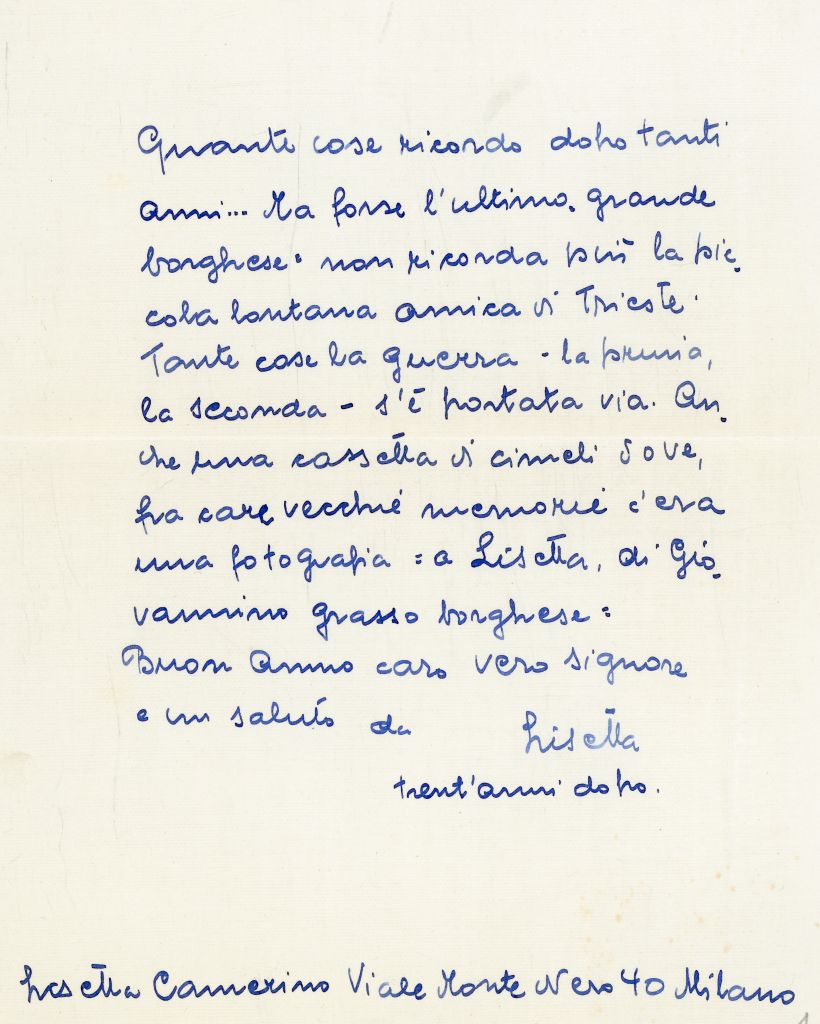 Quante cose ricordo dopo tanti
anni... Ma forse l'ultimo "grande
borghese" non ricorda più la pic-
cola lontana amica di Trieste.
Tante cose la guerra - la prima,
la seconda - s'è portata via. An-
che una cassetta di cimeli dove,
fra care vecchie memorie c'era
una fotografia "a Lisetta, di Gio-
vannino grasso borghese"
Buon Anno caro vero signore
e un saluto da Lisetta
trent'anni dopo.
Lisetta Camerino Viale Monte Nero 40 Milano